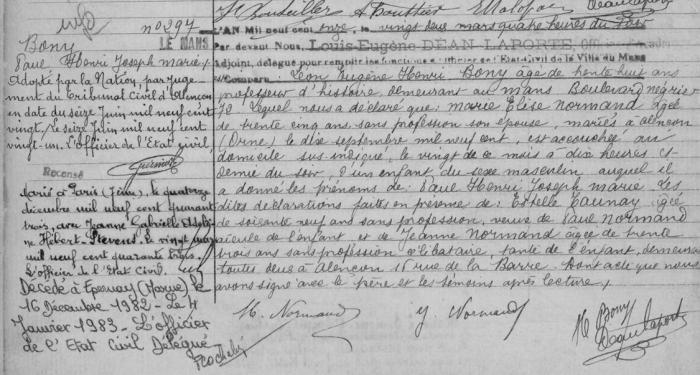 n° 297
Bony
Paul Henri Joseph Marie
Adopté par la Nation, par juge
ment du Tribunal Civil d'Alençon
en date du seize Juin mil neuf cent
vingt, le seize Juin mil neuf cent
vingt-un. L'officier de l'Etat civil,
Recensé
Marié à Paris (7ème), le quatorze
décembre mil neuf cent quarante
trois, avec Jeanne Gabrielle
Hébert-Stevens, le vingt
mil neuf cent quarante trois.
L'officier de l'Etat Civil.
Décédé à Epernay (Marne) le
16 Décembre 1982 - Le 4
Janvier 1983 - L'officier
de l'Etat Civil Délégué
LE MANS
L'AN Mil neuf cent onze, le vingt deux mars quatre heures du soir
Par devant Nous, Louis-Eugène DEAN-LAPORTE,
Adjoint, délégué pour remplir les fonctions d'officier de l'Etat-Civil de la Ville du Mans
a Comparu: Léon Eugène Henri Bony âgé de trente huit ans
professeur d'histoire, demeurant au Mans Boulevard Négrier
Lequel nous a déclaré que: Marie Elise Normand âgée
de trente cinq ans sans profession son épouse, mariés à Alençon
(Orne) le dix septembre mil neuf cent, est accouchée au
domicile sus indiqué, le vingt de ce mois à dix heures et
demie du soir, d'un enfant du sexe masculin auquel il
a donné les prénoms de: Paul Henri Joseph Marie. Les
dites déclarations faites en présence de: Estelle Launay âgée
de soixante neuf ans sans profession, veuve de Paul Normand
aïeule de l'enfant, et de Jeanne Normand âgée de trente
trois ans sans profession célibataire, tante de l'enfant, demeurant
toutes deux à Alençon 16 rue de la Barre. Dont acte que nous
avons signé avec le père et les témoins après lecture,
Normand J. Normand H Bony